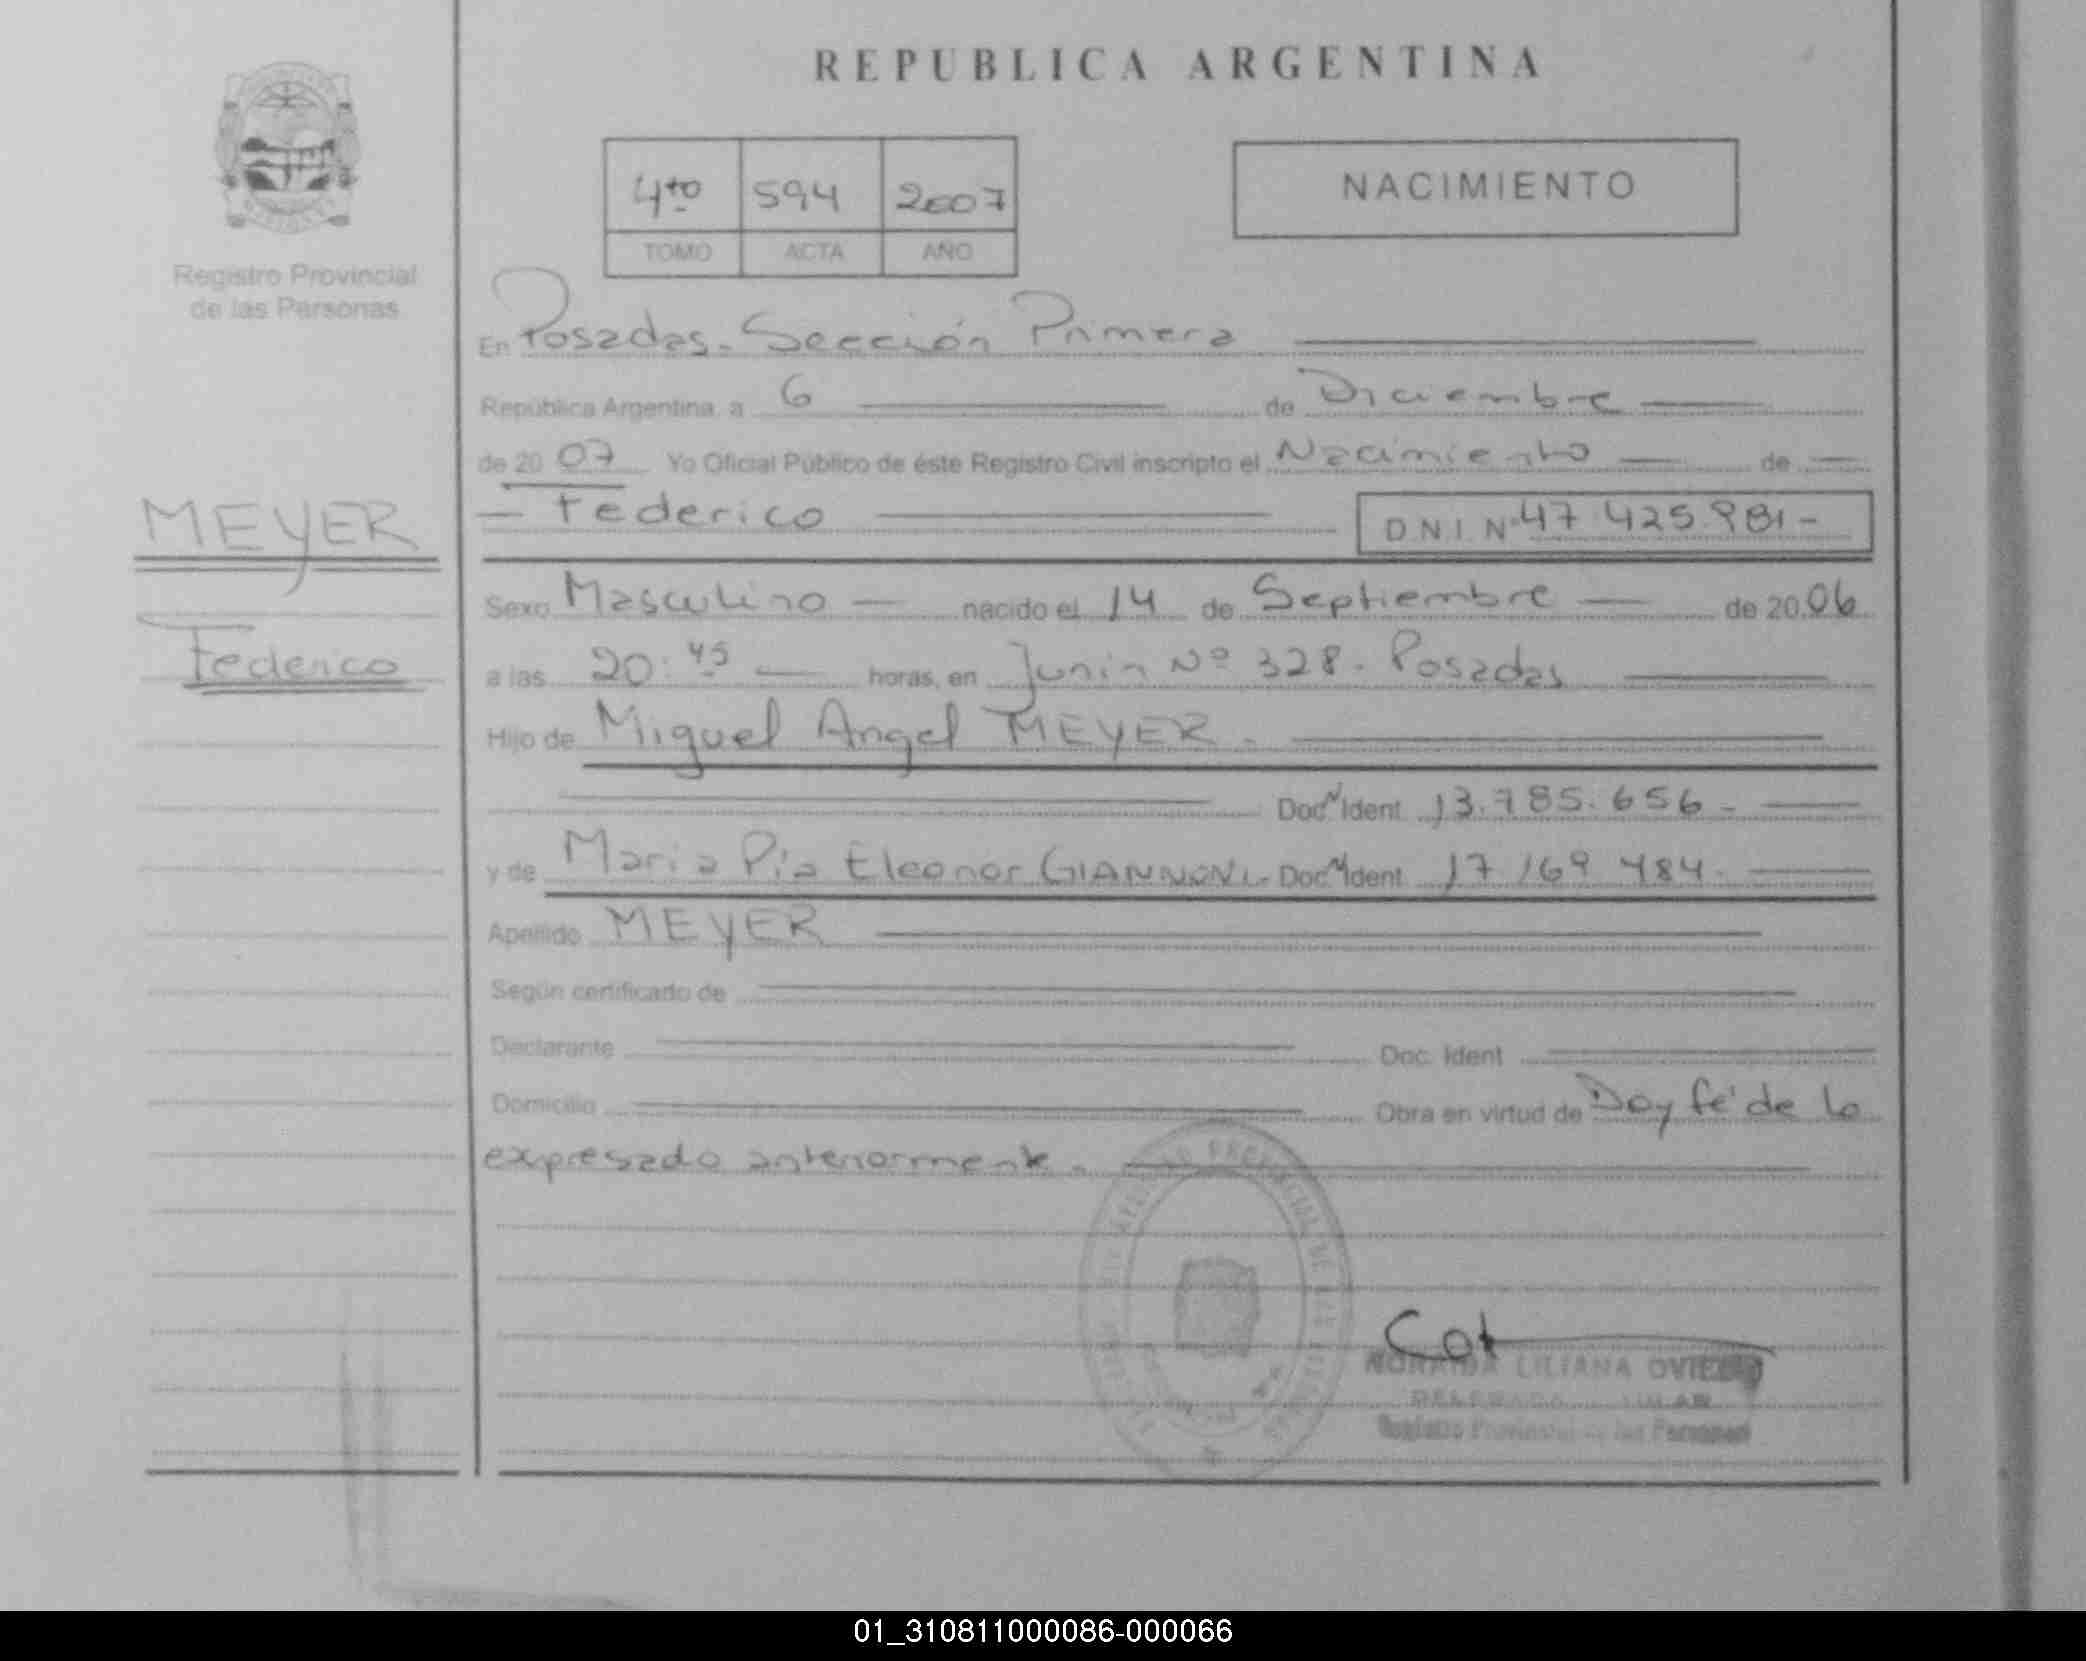 REPUBLICA ARGENTINA
Registro Provincial
de las Personas
4to 594 2007
TOMO ACTA AÑO
NACIMIENTO
En Posadas. Sección Primera
República Argentina, a 6 de Diciembre
de 20 07 Yo Oficial Público de éste Registro Civil inscripto el Nacimiento de
Federico D.N.I. Nº 47.425.981-
MEYER
Federico
Sexo Masculino nacido el 14 de Septiembre de 20 06
a las 20:45 horas, en Junín Nº 328. Posadas
Hijo de Miguel Angel MEYER.
Doc. Ident. 13.785.656-
y de Maria Pía Eleonor GIANNONI. Doc. Ident. 17 169 484.
Apellido MEYER
Según certificado de
Declarante Doc. Ident
Domicilio Obra en virtud de Doy fé de lo
expresado anteriormente.
LILIANA OVIEDO
Registro Provincial de las Personas
01_310811000086-000066